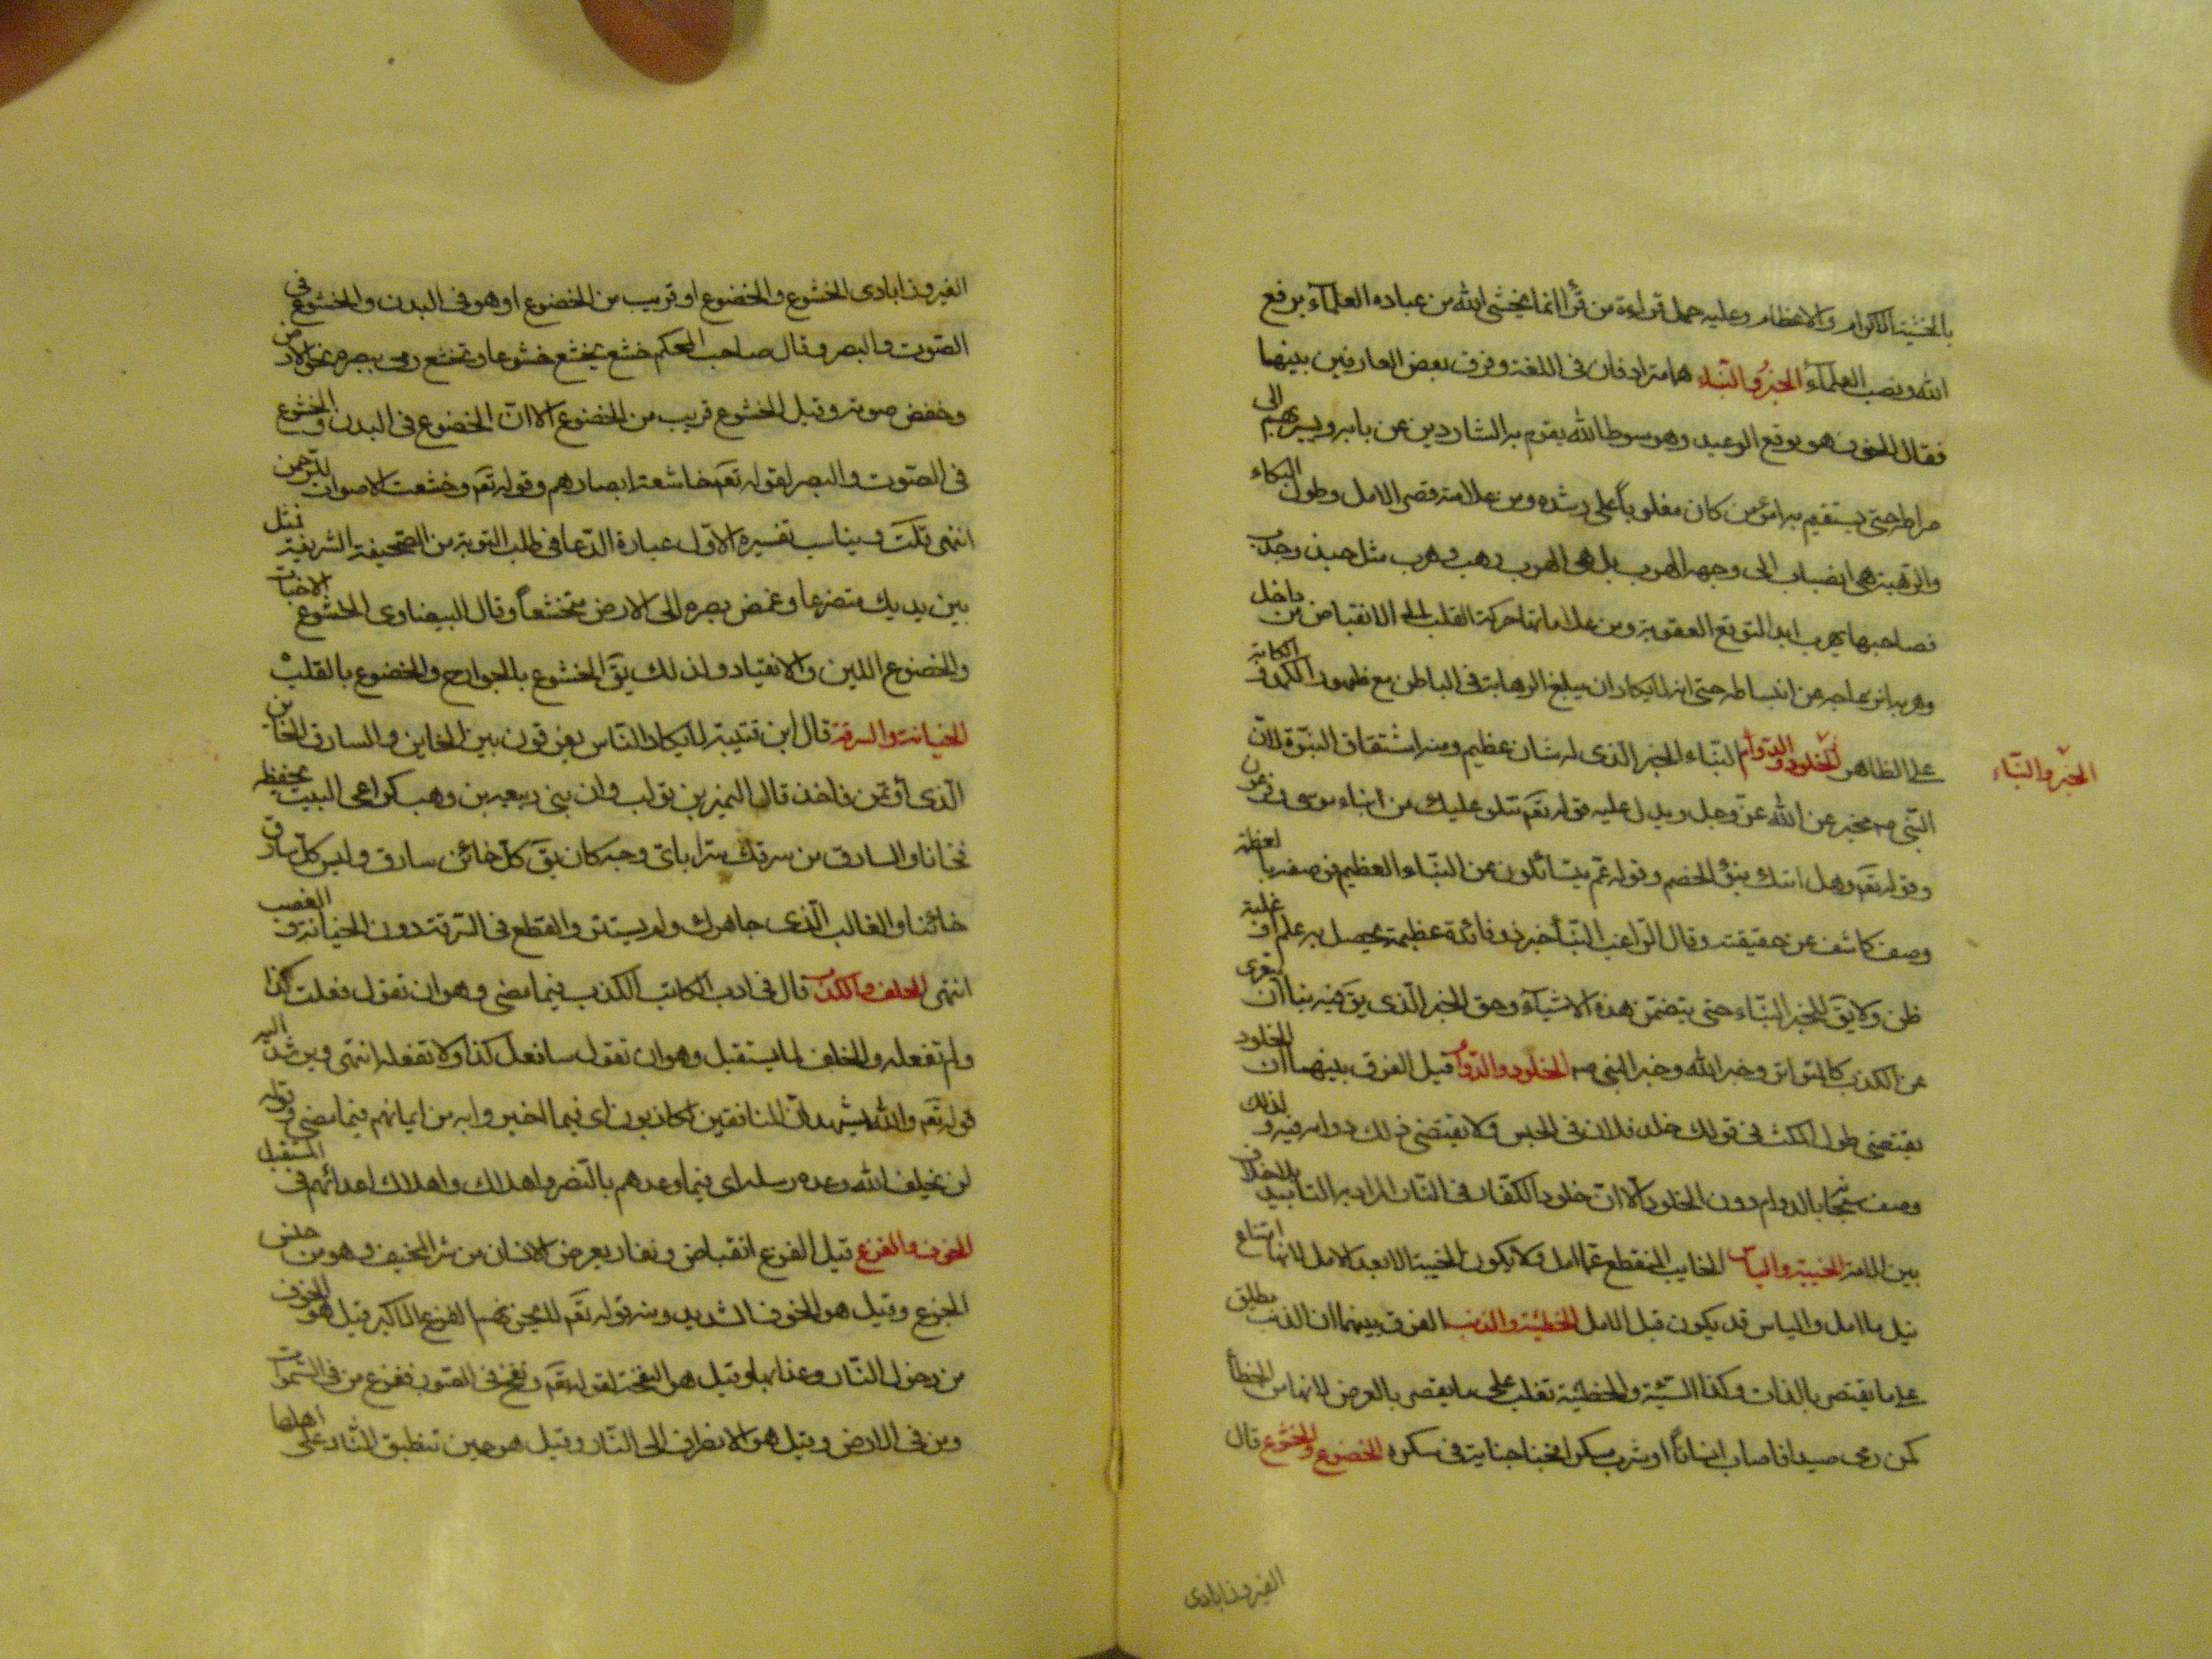 بالخشية الاكرام والاعظام وعليه حمل قراءة من قرأ انما يخشى الله من عباده العلمآء برفع
الله ونصب العلمآء الخبرُ والنّباء هما مترادفان فى اللغة وفرق بعض العارفين بينهما
فقال الخوف هو توقع الوعيد وهو سوط الله يقوم به الشاردين عن بابه ويسير بهم الى
صراطه حتى يستقيم به امر من كان مغلوباً على رشده ومن علامته قصر الامل وطول البكاء
والرّهبة هى انصباب الى وجهة الهرب بل هى الهرب رهب وهرب مثل جبذ وجذب
فصاحبها يهرب ابدا لتوقع العقوبة ومن علاماتها حركة القلب الى الانقباض من داخل
وهربه وانزعاجه عن انبساطه حتى انه لايكاد ان يبلغ الرهابة فى الباطن مع ظهور الكمد و الكآبة
على الظاهر الخلود والدّوام النّباء الخبر الّذى له شان عظيم ومنه اشتقاق النبّوة لانّ
الخبر والنّباء
النّبى مخبر عن الله عزّ وجل ويدل عليه قوله تعَ نتلو عليك من انباء موسى وفرعون
وقوله تعَ وهل اتيك نبؤُ الخصم وقوله عمّ يتسائلون عن النبّاء العظيم فوصفه بالعظمة
وصف كاشف عن حقيقته وقال الرّاغب النّبأ خبر ذو فائدة عظيمة يحصل به علم او غلبة
ظن ولا يقَ للخبر النبّاء حتى يتضمّن هذه الاشيآء وحق الخبر الّذى يقَ فيه نبا ان يتعرى
عن الكذب كالتواتر وخبر الله وخبر النبى الخلود والدّوام قيل الفرق بينهما ان الخلود
يقتضى طول المكث فى قولك خلد فلان فى الحبس ولا يقتضى ذلك دوامه فيه ولذلك
وصف سبحانه بالدوام دون الخلود الّا انّ خلود الكفّار فى النّار المراد به التأبيد بلا خلاف
بين الامة الخيبة والياس الخايب المنقطع عمّا امل ولا يكون الخيبة الا بعد الامل لانها امتناع
نيل ما امل والياس قد يكون قبل الامل الخطيئة والذنب الفرق بينهما ان الذنب يطلق
على ما يقصد بالذات وكذا السّيّئة والخطيئة تغلب على ما يقصد بالعرض لانها من الخطأ
كمن رمى صيدا فاصاب انساناً او شرب مسكرا فجنا جناية فى سكره الخضوع والخشوع قال
الفيروزابادى
الفيروزابادى الخشوع والخضوع او قريب من الخضوع او هو فى البدن والخشوع فى
الصّوت والبصر وقال صاحب المحكم خشع يخشع خشوعا وتخشع رمى ببصره نحو الارض
وخفض صوته وقيل الخشوع قريب من الخضوع الا انّ الخضوع فى البدن والخشوع
فى الصّوت والبصر لقوله تعَ خاشعة ابصارهم وقوله تعَ وخشعت الاصوات للرّحمن
انتهى قلتَ ويناسب تفسيره الاوّل عبارة الدّعا فى طلب التوبة من الصّحيفة الشريفة فمثل
بين يديك متضرعا وغمض بصره الى الارض متخشعاً وقال البيضاوى الخشوع الاخبات
والخضوع اللين والانقياد ولذلك يقَ الخشوع بالجوارح والخضوع بالقلب
الخيانة والسرقة قال ابن قتيبة لايكاد النّاس يفرقون بين الخاين والسارق الخاين
الّذى أؤتمن فاخذ قال النمر بن تولب وان بنى ربيعه بن وهب كراعى البيت يحفظه
فخانا والسارق من سرقك سرا باىّ وجه كان يقَ كلّ خائن سارق وليس كلّ سارق
خائنا والغاصب الّذى جاهرك ولم يستتر والقطع فى السّرقة دون الخيانة والغصب
انتهى الخلف والكذب قال فى ادب الكاتب الكذب فيما مضى وهو ان تقول فعلت كذا
ولم تفعله والخلف لما يستقبل وهو ان تقول سافعل كذا ولا تفعله انتهى ويرشد اليه
قوله تعَ والله يشهد انّ المنافقين لكاذبون اى فيما اخبروا به من ايمانهم فيما مضى وقوله
لن يخلف الله وعده رسله اى فيما وعدهم بالنّصر واهلاك واهلاك اعدائهم فى المستقبل
الخوف والفزع قيل الفزع انقباض ونفار يعرض للانسان من الشئ المخيف وهو من جنس
الجزع وقيل هو الخوف الشديد ومنه قوله تعَ لا يحزنهم الفزع الاكبر قيل هو الخوف
من دخول النّار وعذابها وقيل هو النفخة لقوله تعَ ونفخ فى الصّور ففزع من فى السّموات
ومن فى الارض وقيل هو الانصراف الى النّار وقيل هو حين تنطبق النّار على اهلها